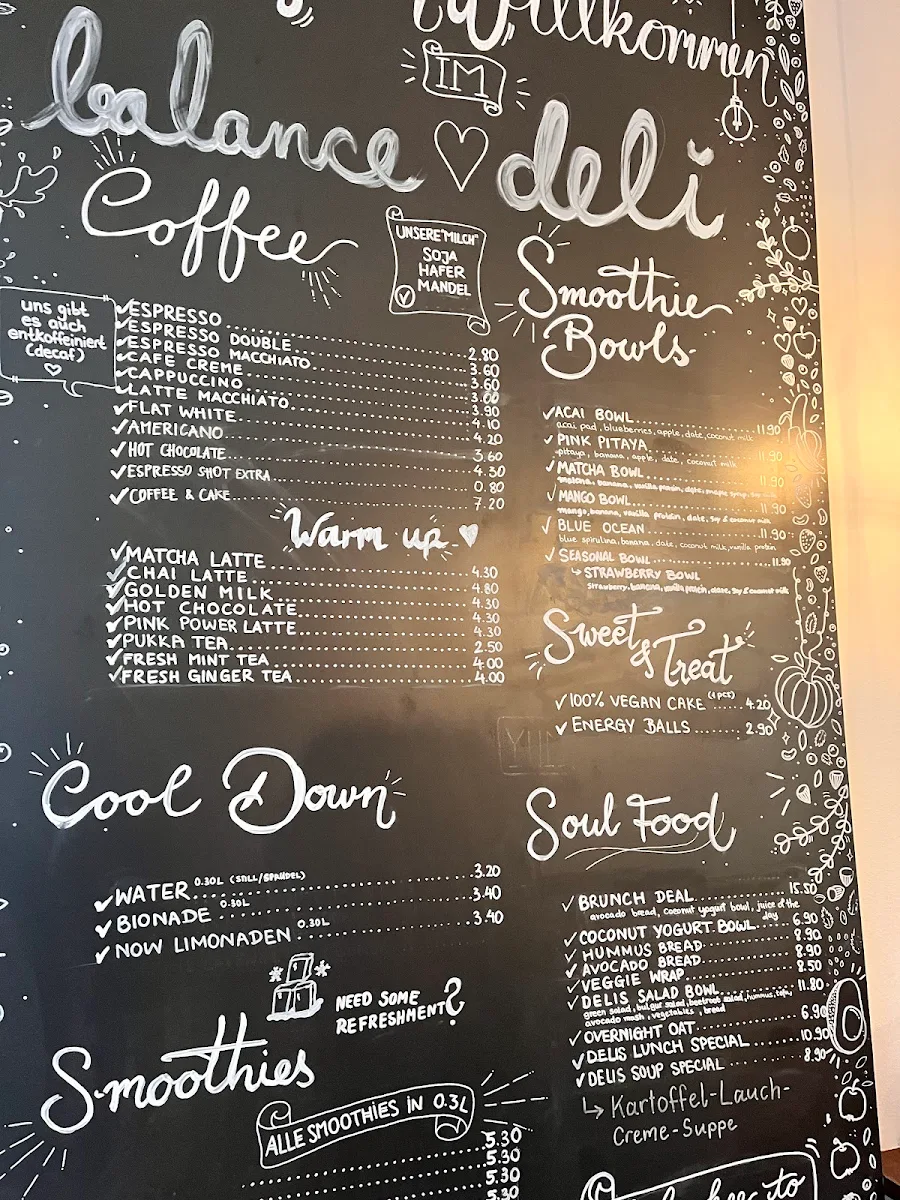 Willkommen
IM
balance deli
Coffee
UNSERE "MILCH"
SOJA
HAFER
MANDEL
uns gibt
es auch
entkoffeiniert
(decaf)
ESPRESSO 2.80
ESPRESSO DOUBLE 3.60
ESPRESSO MACCHIATO 3.60
CAFE CREME 3.00
CAPPUCCINO 3.90
LATTE MACCHIATO 4.10
FLAT WHITE 4.20
AMERICANO 3.60
HOT CHOCOLATE 4.30
ESPRESSO SHOT EXTRA 0.80
COFFEE & CAKE 7.20
Warm up
MATCHA LATTE 4.30
CHAI LATTE 4.80
GOLDEN MILK 4.30
HOT CHOCOLATE 4.30
PINK POWER LATTE 4.30
PUKKA TEA 2.50
FRESH MINT TEA 4.00
FRESH GINGER TEA 4.00
Cool Down
WATER 0.30L (STILL/SPRUDEL) 3.20
BIONADE 0.30L 3.40
NOW LIMONADEN 0.30L 3.40
NEED SOME
REFRESHMENT?
Smoothies
ALLE SMOOTHIES IN 0.3L
5.30
5.30
5.30
5.30
Smoothie
Bowls
ACAI BOWL 11.90
acai pad, blueberries, apple, date, coconut milk
PINK PITAYA 11.90
pitaya, banana, apple, date, coconut milk
MATCHA BOWL 11.90
banana, vanilla protein, date
MANGO BOWL 11.90
mango, banana, vanilla protein, date, soy & coconut milk
BLUE OCEAN
blue spirulina, banana, date, coconut milk, vanilla protein
SEASONAL BOWL 11.90
↳ STRAWBERRY BOWL
Strawberry, banana, vanilla protein, date, soy & coconut milk
Sweet
& Treat
100% VEGAN CAKE (1 pcs) 4.20
ENERGY BALLS 2.90
Soul Food
BRUNCH DEAL 15.50
avocado bread, coconut yogurt bowl, juice of the
day
COCONUT YOGURT BOWL 6.90
HUMMUS BREAD 8.90
AVOCADO BREAD 8.90
VEGGIE WRAP 8.50
DELIS SALAD BOWL 11.80
green salad, bulgur salad, beetroot salad, hummus, tofu,
avocado mash, vegetables, bread
OVERNIGHT OAT 6.90
DELIS LUNCH SPECIAL 10.90
DELIS SOUP SPECIAL 8.90
↳ Kartoffel-Lauch-
Creme-Suppe